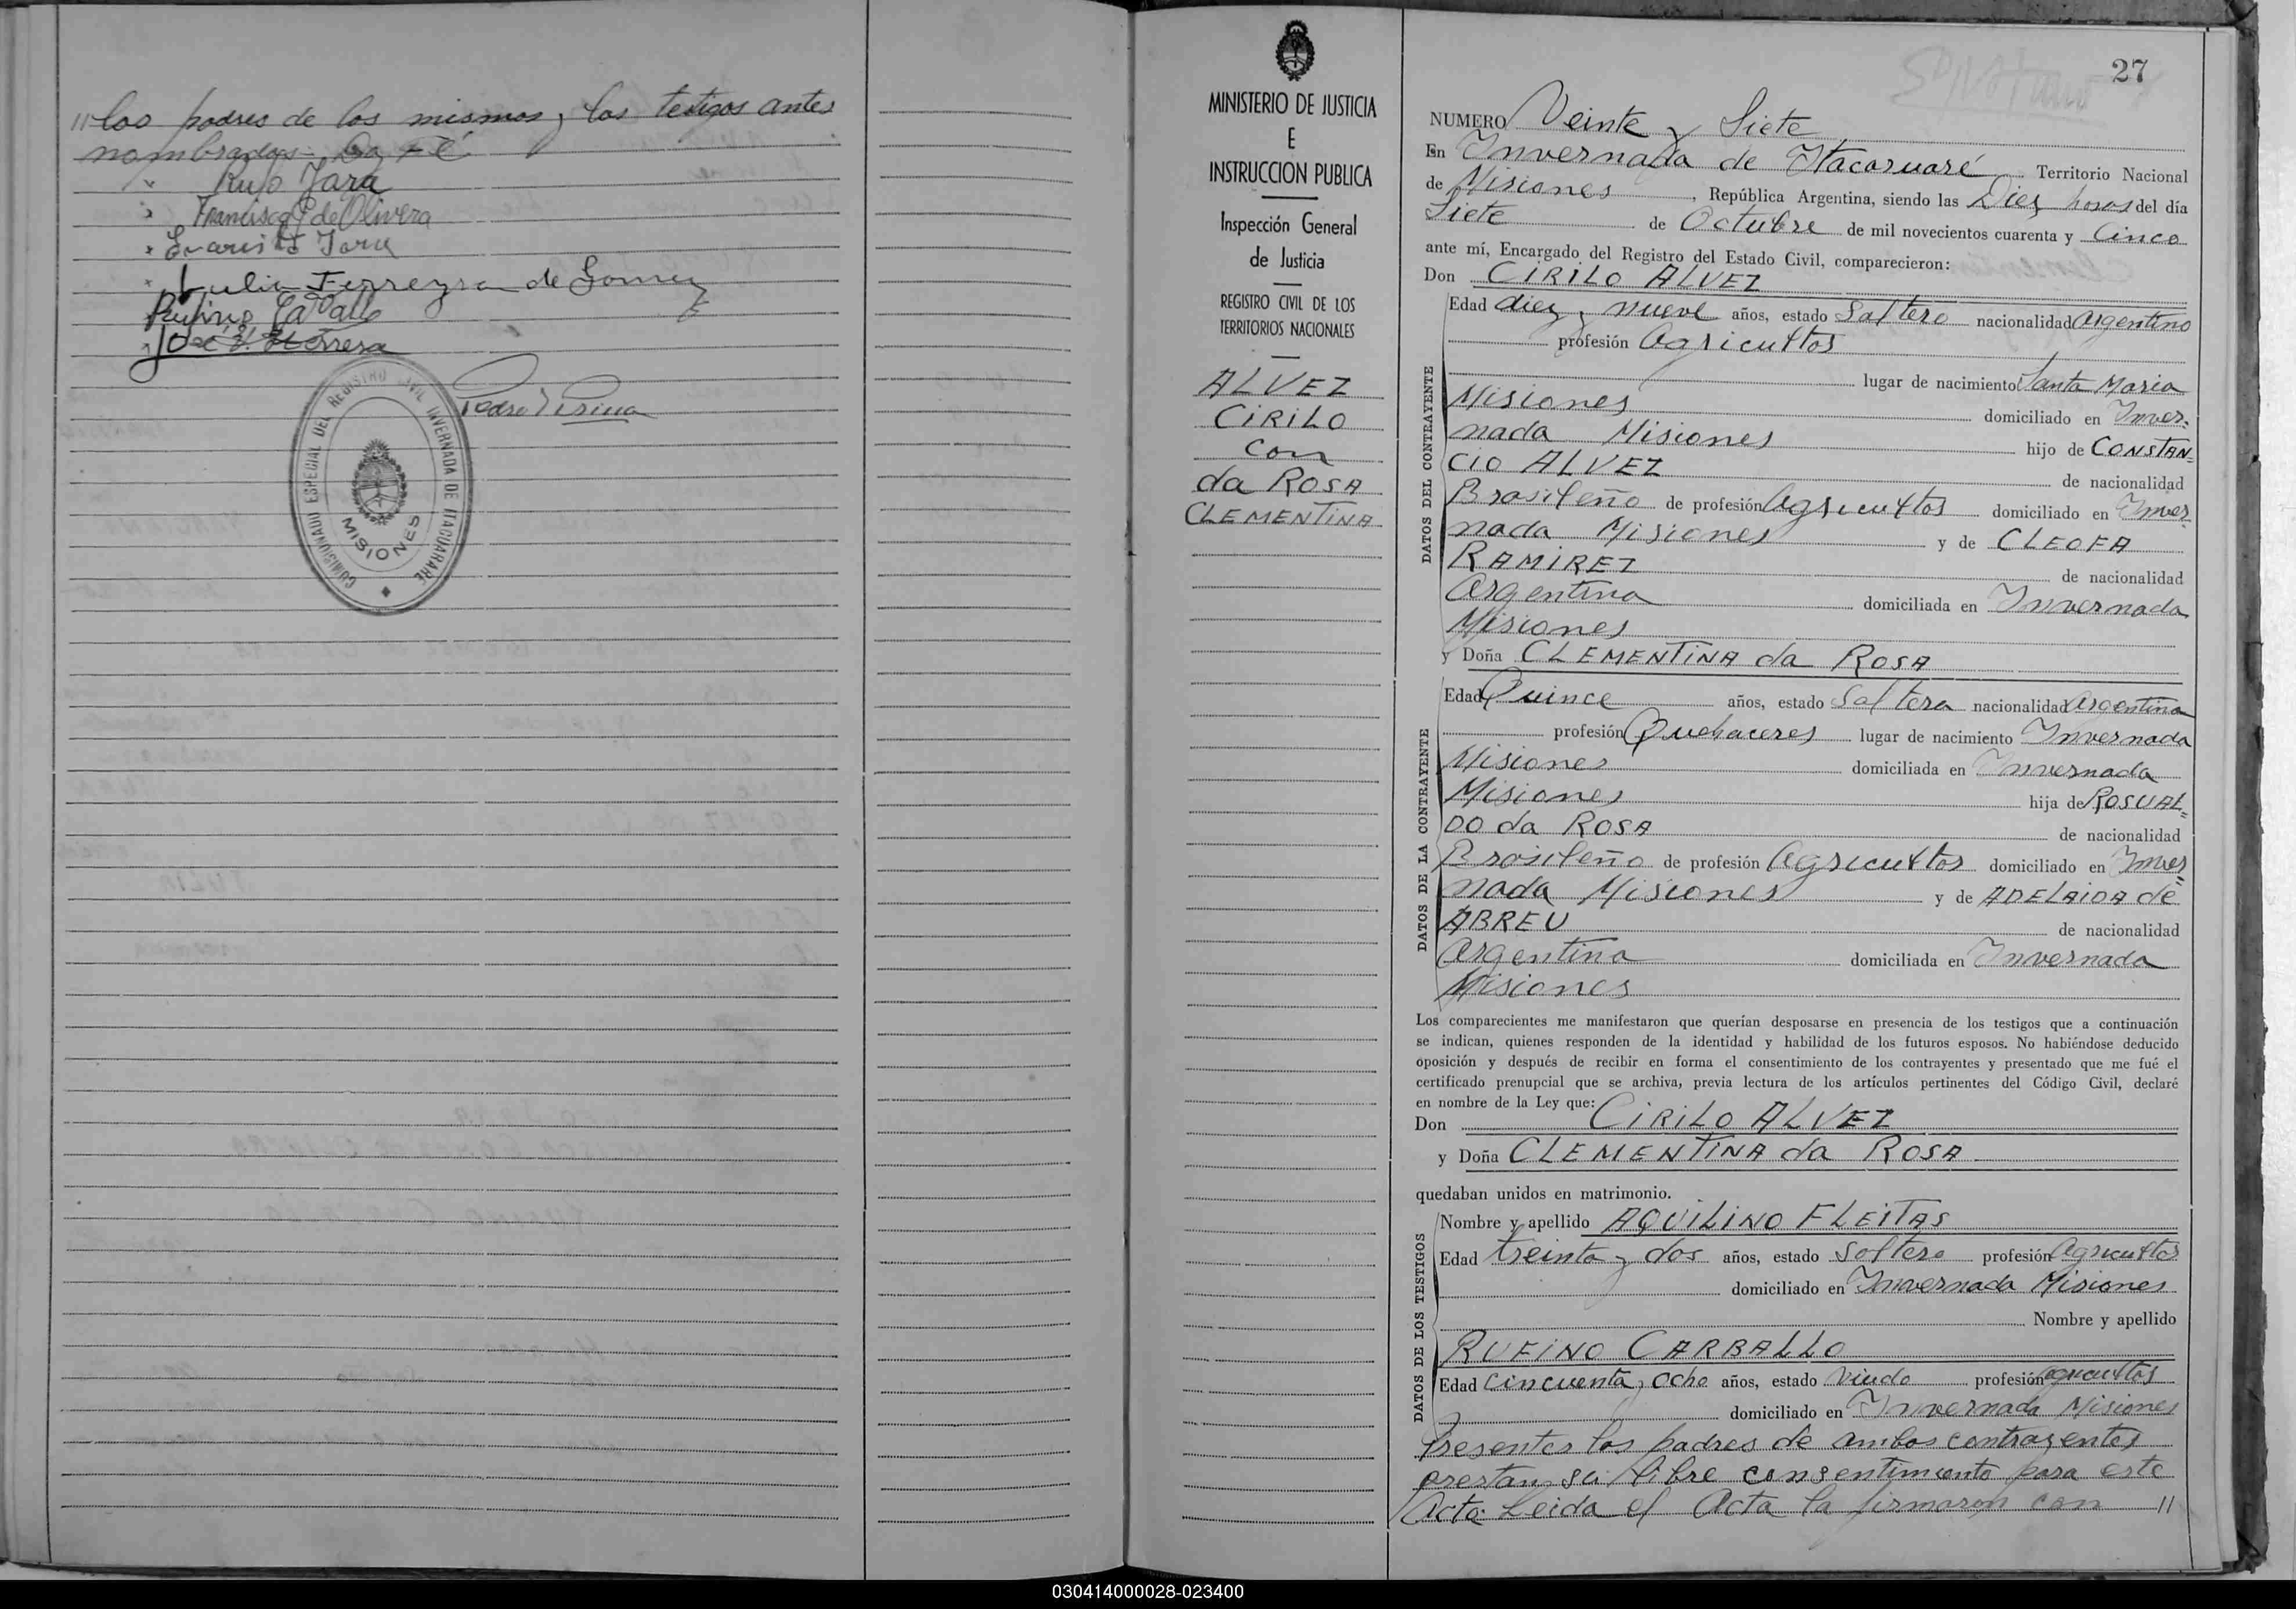 "los padres de los mismos y los testigos antes
nombrados. Doy Fé
Rufo Jara
Francisca G de Olivera
Evaristo Jara
Julia Ferreyra de Gomez
Rufino
José
COMISIONADO ESPECIAL DEL REGISTRO CIVIL INVERNADA DE ITACUARARE
MISIONES
Pedro
MINISTERIO DE JUSTICIA
E
INSTRUCCION PUBLICA
Inspección General
de Justicia
REGISTRO CIVIL DE LOS
TERRITORIOS NACIONALES
ALVEZ
CIRILO
con
da ROSA
CLEMENTINA
27
NUMERO Veinte y Siete
En Invernada de Itacaruaré Territorio Nacional
de Misiones, República Argentina, siendo las Diez horas del día
Siete de Octubre de mil novecientos cuarenta y Cinco
ante mí, Encargado del Registro del Estado Civil, comparecieron:
Don CIRILO ALVEZ
DATOS DEL CONTRAYENTE
Edad diez y nueve años, estado Soltero nacionalidad Argentino
profesión Agricultor
lugar de nacimiento Santa Maria
Misiones domiciliado en Inver-
nada Misiones hijo de CONSTAN=
CIO ALVEZ de nacionalidad
Brasileño de profesión Agricultor domiciliado en Inver
nada Misiones y de CLEOFA
RAMIREZ de nacionalidad
Argentina domiciliada en Invernada
Misiones
y Doña CLEMENTINA da ROSA
DATOS DE LA CONTRAYENTE
Edad Quince años, estado Soltera nacionalidad Argentina
profesión Quehaceres lugar de nacimiento Invernada
Misiones domiciliada en Invernada
Misiones hija de ROSUAL=
DO da ROSA de nacionalidad
Brasileño de profesión Agricultor domiciliado en Inver=
nada Misiones y de ADELAIDA de
ABREU de nacionalidad
Argentina domiciliada en Invernada
Misiones
Los comparecientes me manifestaron que querían desposarse en presencia de los testigos que a continuación
se indican, quienes responden de la identidad y habilidad de los futuros esposos. No habiéndose deducido
oposición y después de recibir en forma el consentimiento de los contrayentes y presentado que me fué el
certificado prenupcial que se archiva, previa lectura de los artículos pertinentes del Código Civil, declaré
en nombre de la Ley que:
Don CIRILO ALVEZ
y Doña CLEMENTINA da ROSA.
quedaban unidos en matrimonio.
DATOS DE LOS TESTIGOS
Nombre y apellido AQUILINO FLEITAS
Edad treinta y dos años, estado Soltero profesión Agricultor
domiciliado en Invernada Misiones
Nombre y apellido
RUFINO CARBALLO
Edad cincuenta y ocho años, estado Viudo profesión agricultor
domiciliado en Invernada Misiones
Presentes los padres de ambos contrayentes
prestan su libre consentimiento para este
Acto. Leida el Acta la firmaron con "
030414000028-023400